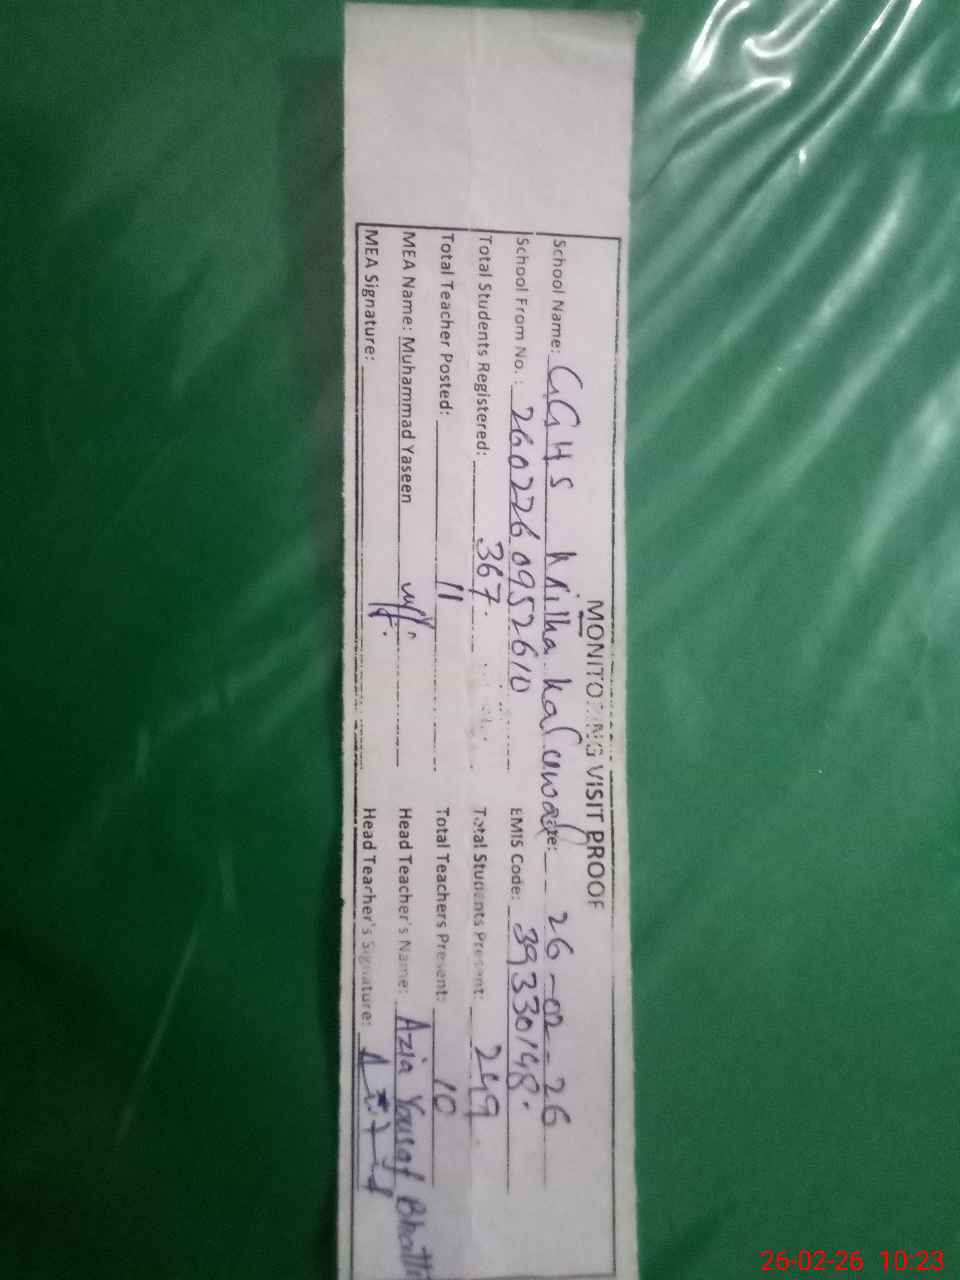 MONITORING VISIT PROOF
School Name: GGHS Date: 26-02-26
School From No.: 2602260952610 EMIS Code: 39330148.
Total Students Registered: 367. Total Students Present: 249
Total Teacher Posted: 11 Total Teachers Present: 10
MEA Name: Muhammad Yaseen Head Teacher's Name: Azia Yousaf Bhatti
MEA Signature: Head Teacher's Signature:
26-02-26 10:23